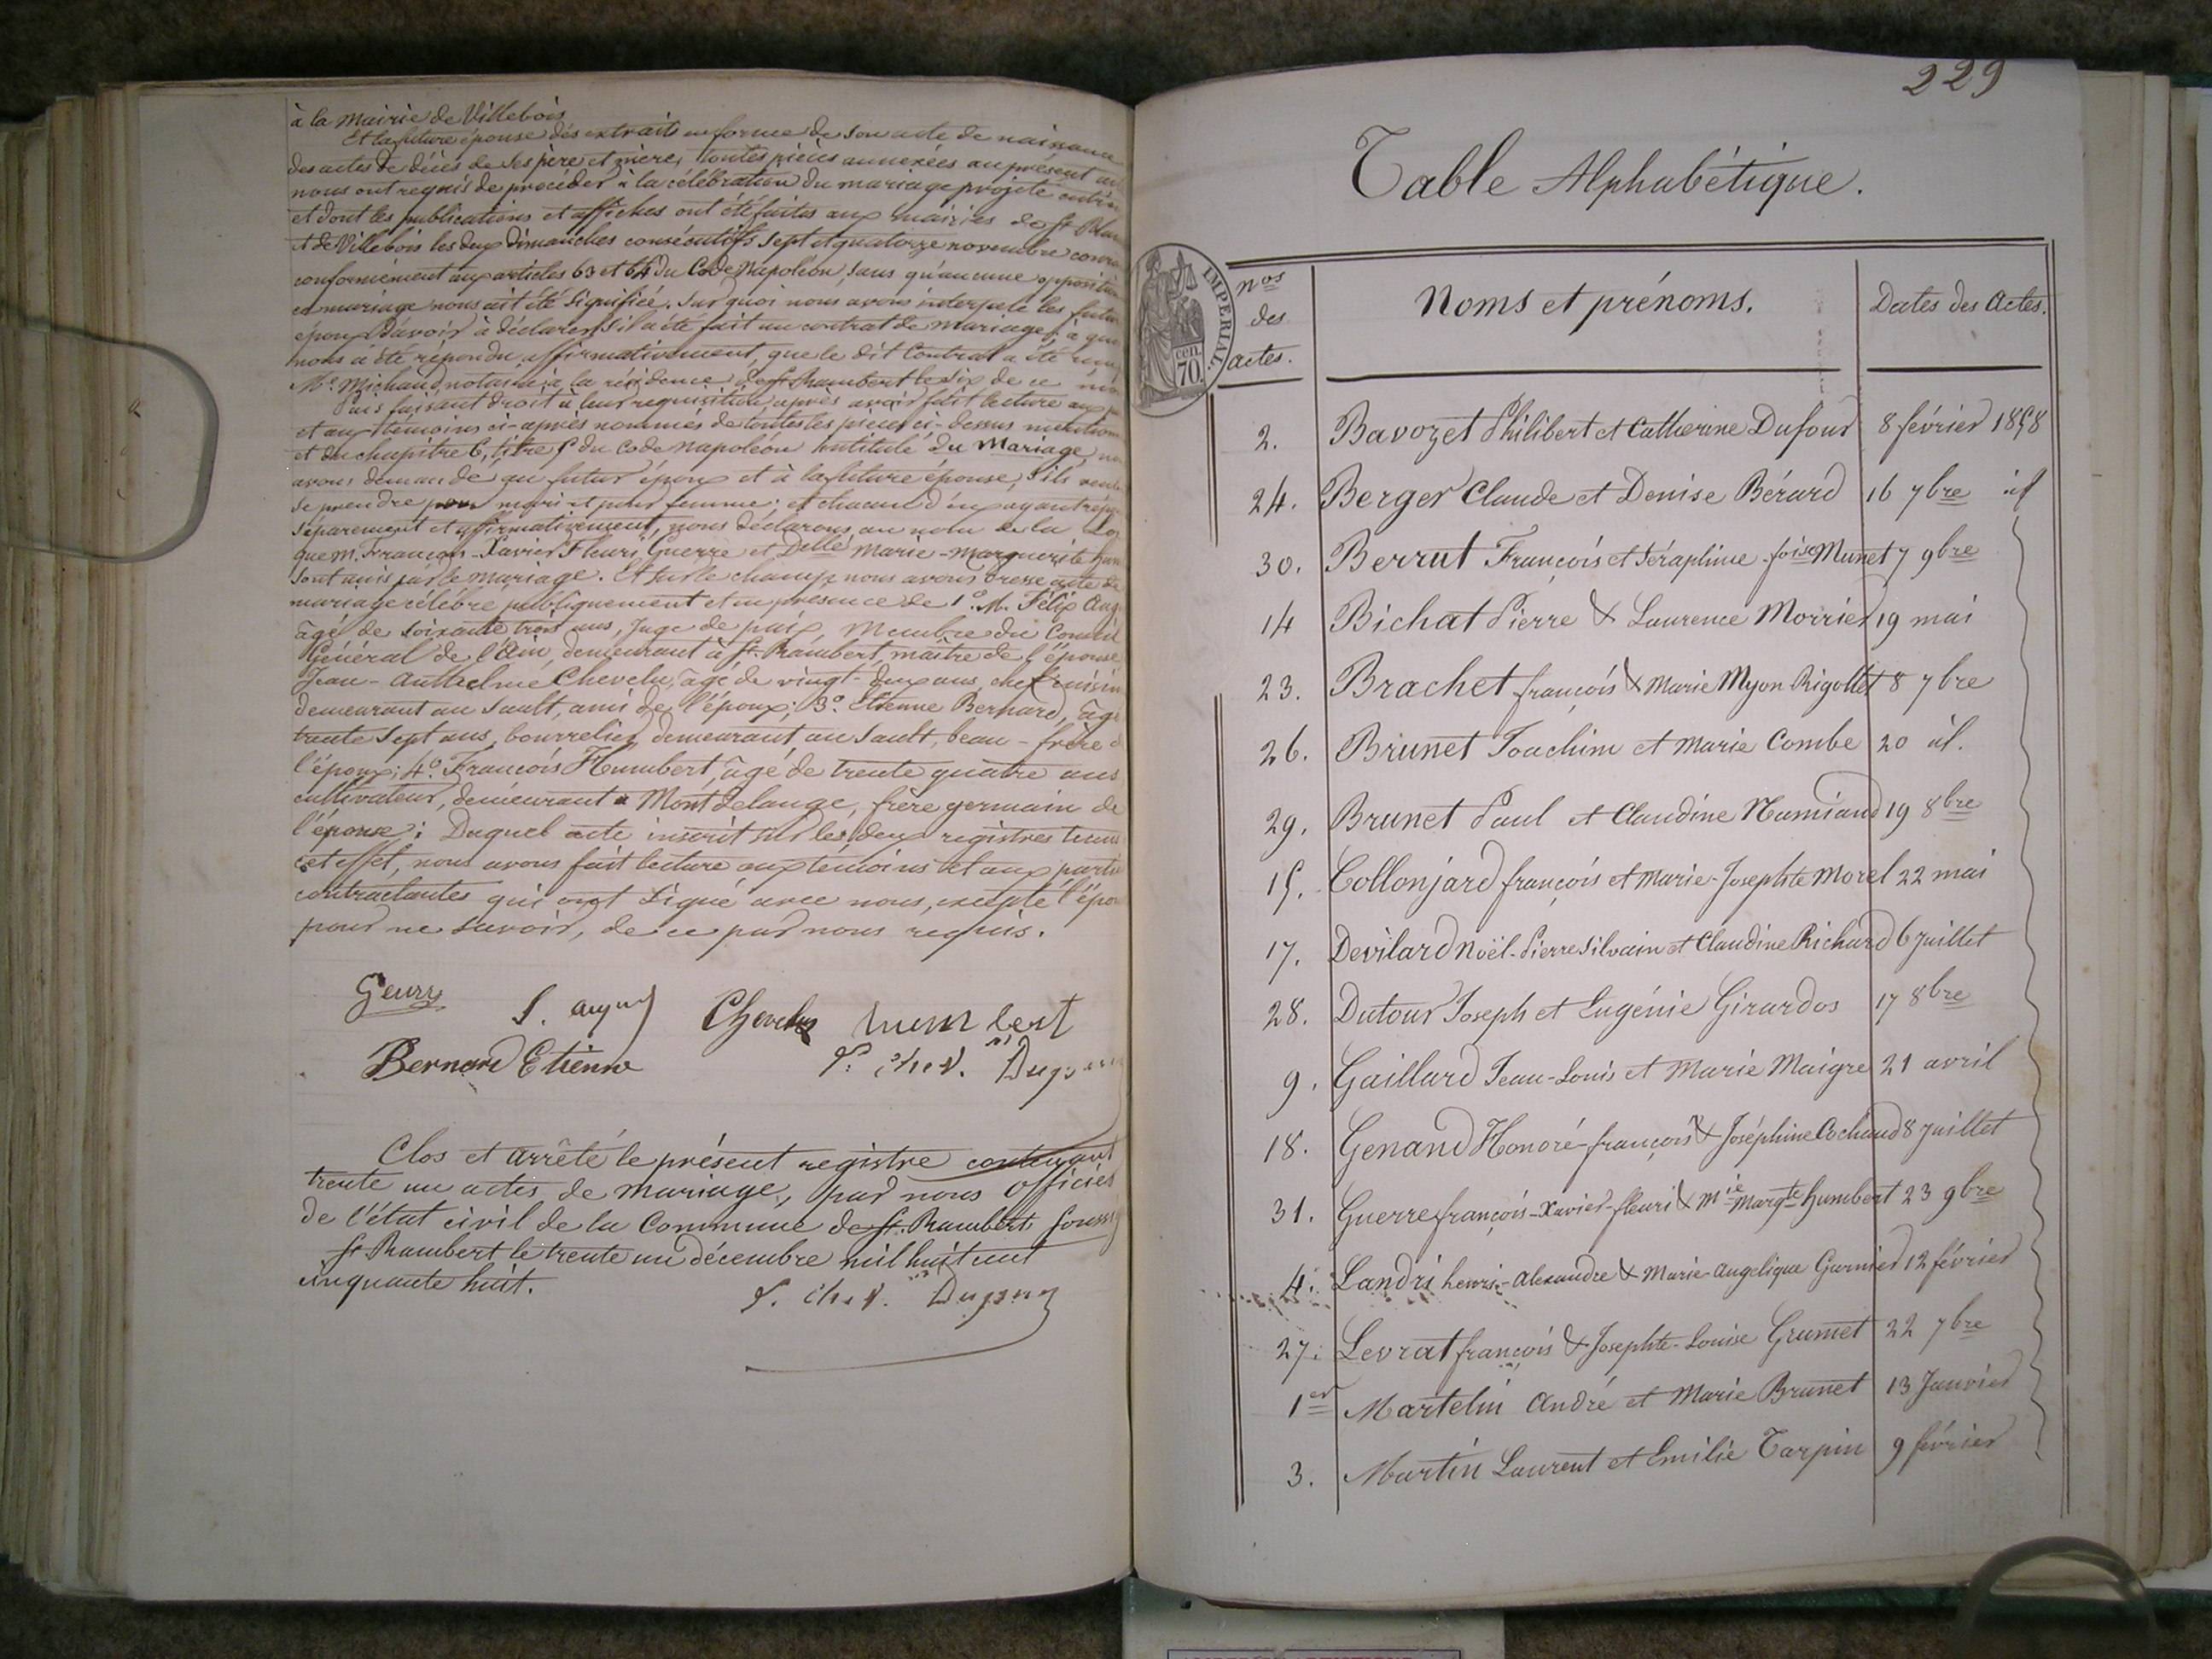 à la Mairie de Villebois
Et la future épouse des extraits en forme de son acte de naissance
des actes de décès de ses père et mère, toutes pièces annexées au présent
nous ont requis de procéder à la célébration du mariage projeté entre
et dont les publications et affiches ont été faites aux mairies de St Ram
et de Villebois les deux dimanches consécutifs sept et quatorze novembre
conformément aux articles 63 et 64 du Code Napoléon, sans qu'aucune opposition
ce mariage nous ait été signifiée. Sur quoi nous avons interpelé les futurs
époux d'avoir à déclarer s'il a été fait un contrat de mariage; à quoi
nous a été répondu affirmativement, que le dit Contrat a été
Me. Michaud notaire à la résidence de St Rambert le six de ce
Puis faisant droit à leur requisition après avoir fait lecture aux
et aux témoins ci-après nommés de toutes les pièces ci-dessus mention
et du chapitre 6, titre 5 du Code Napoléon intitulé du Mariage,
avons demandé au futur époux et à la future épouse, s'ils
se prendre pour mari et pour femme; et chacun d'eux ayant rép
séparement et affirmativement, nous déclarons au nom de la
que M. François-Xavier Fleuri Guerre et Delle Marie-Marguerite Hum
sont unis par le mariage. Et sur le champ nous avons dressé acte de
mariage célébré publiquement et en présence de 1° M. Félix
âgé de soixante trois ans, Juge de paix, Membre du Conseil
Général de l'Ain, demeurant à St. Rambert, maître de l'épouse
Jean-Anthelme Chevelu, âgé de vingt-deux ans, chef
demeurant au Sault, ami de l'époux; 3°. Etienne Bernard, âgé
trente sept ans, bourrelier, demeurant au Sault, beau-frère
l'époux; 4° François Humbert, âgé de trente quatre ans
cultivateur, demeurant à Mont delange, frère germain de
l'épouse; Duquel acte inscrit sur les deux registres tenus
cet effet, nous avons fait lecture aux témoins et aux parties
contractantes qui ont signé avec nous, excepté l'épou
pour ne savoir, de ce par nous requis.
Chevelu
Bernard Etienne
Clos et arrêté le présent registre contenant
trente un actes de mariage, par nous Officier
de l'état civil de la Commune de St. Rambert
St Rambert le trente un décembre mil huit cent
cinquante huit.
229
Table Alphabétique.
IMPERIAL.
70 cen.
nos des actes. Noms et prénoms. Dates des Actes.
2. Bavozet Philibert et Catherine Dufour 8 février 1858
24. Berger Claude et Denise Bérard 16 7bre id
30. Berrut François et Séraphine foise Munet 7 9bre
14 Bichat Pierre & Laurence Morrier 19 mai
23. Brachet françois & Marie Myon Rigollet 8 7bre
26. Brunet Joachim et Marie Combe 20 id.
29. Brunet Paul et Claudine Namiand 19 8bre
15. Collonjard françois et Marie-Josephte Morel 22 mai
17. Devilard Noël-Pierre Silvain et Claudine Richard 6 Juillet
28. Dutour Joseph et Eugénie Girardos 17 8bre
9. Gaillard Jean-Louis et Marie Maigre 21 avril
18. Genand Honoré-françois & Joséphine Cochaud 8 Juillet
31. Guerre françois-Xavier-fleuri & Mie Margte Humbert 23 9bre
4. Landri henri-Alexandre & Marie-Angelique Garnier 12 février
27. Levrat françois & Josephte-Louise Grumet 22 7bre
1er Martelin André et Marie Brunet 13 Janvier
3. Martin Laurent et Emilie Tarpin 9 février